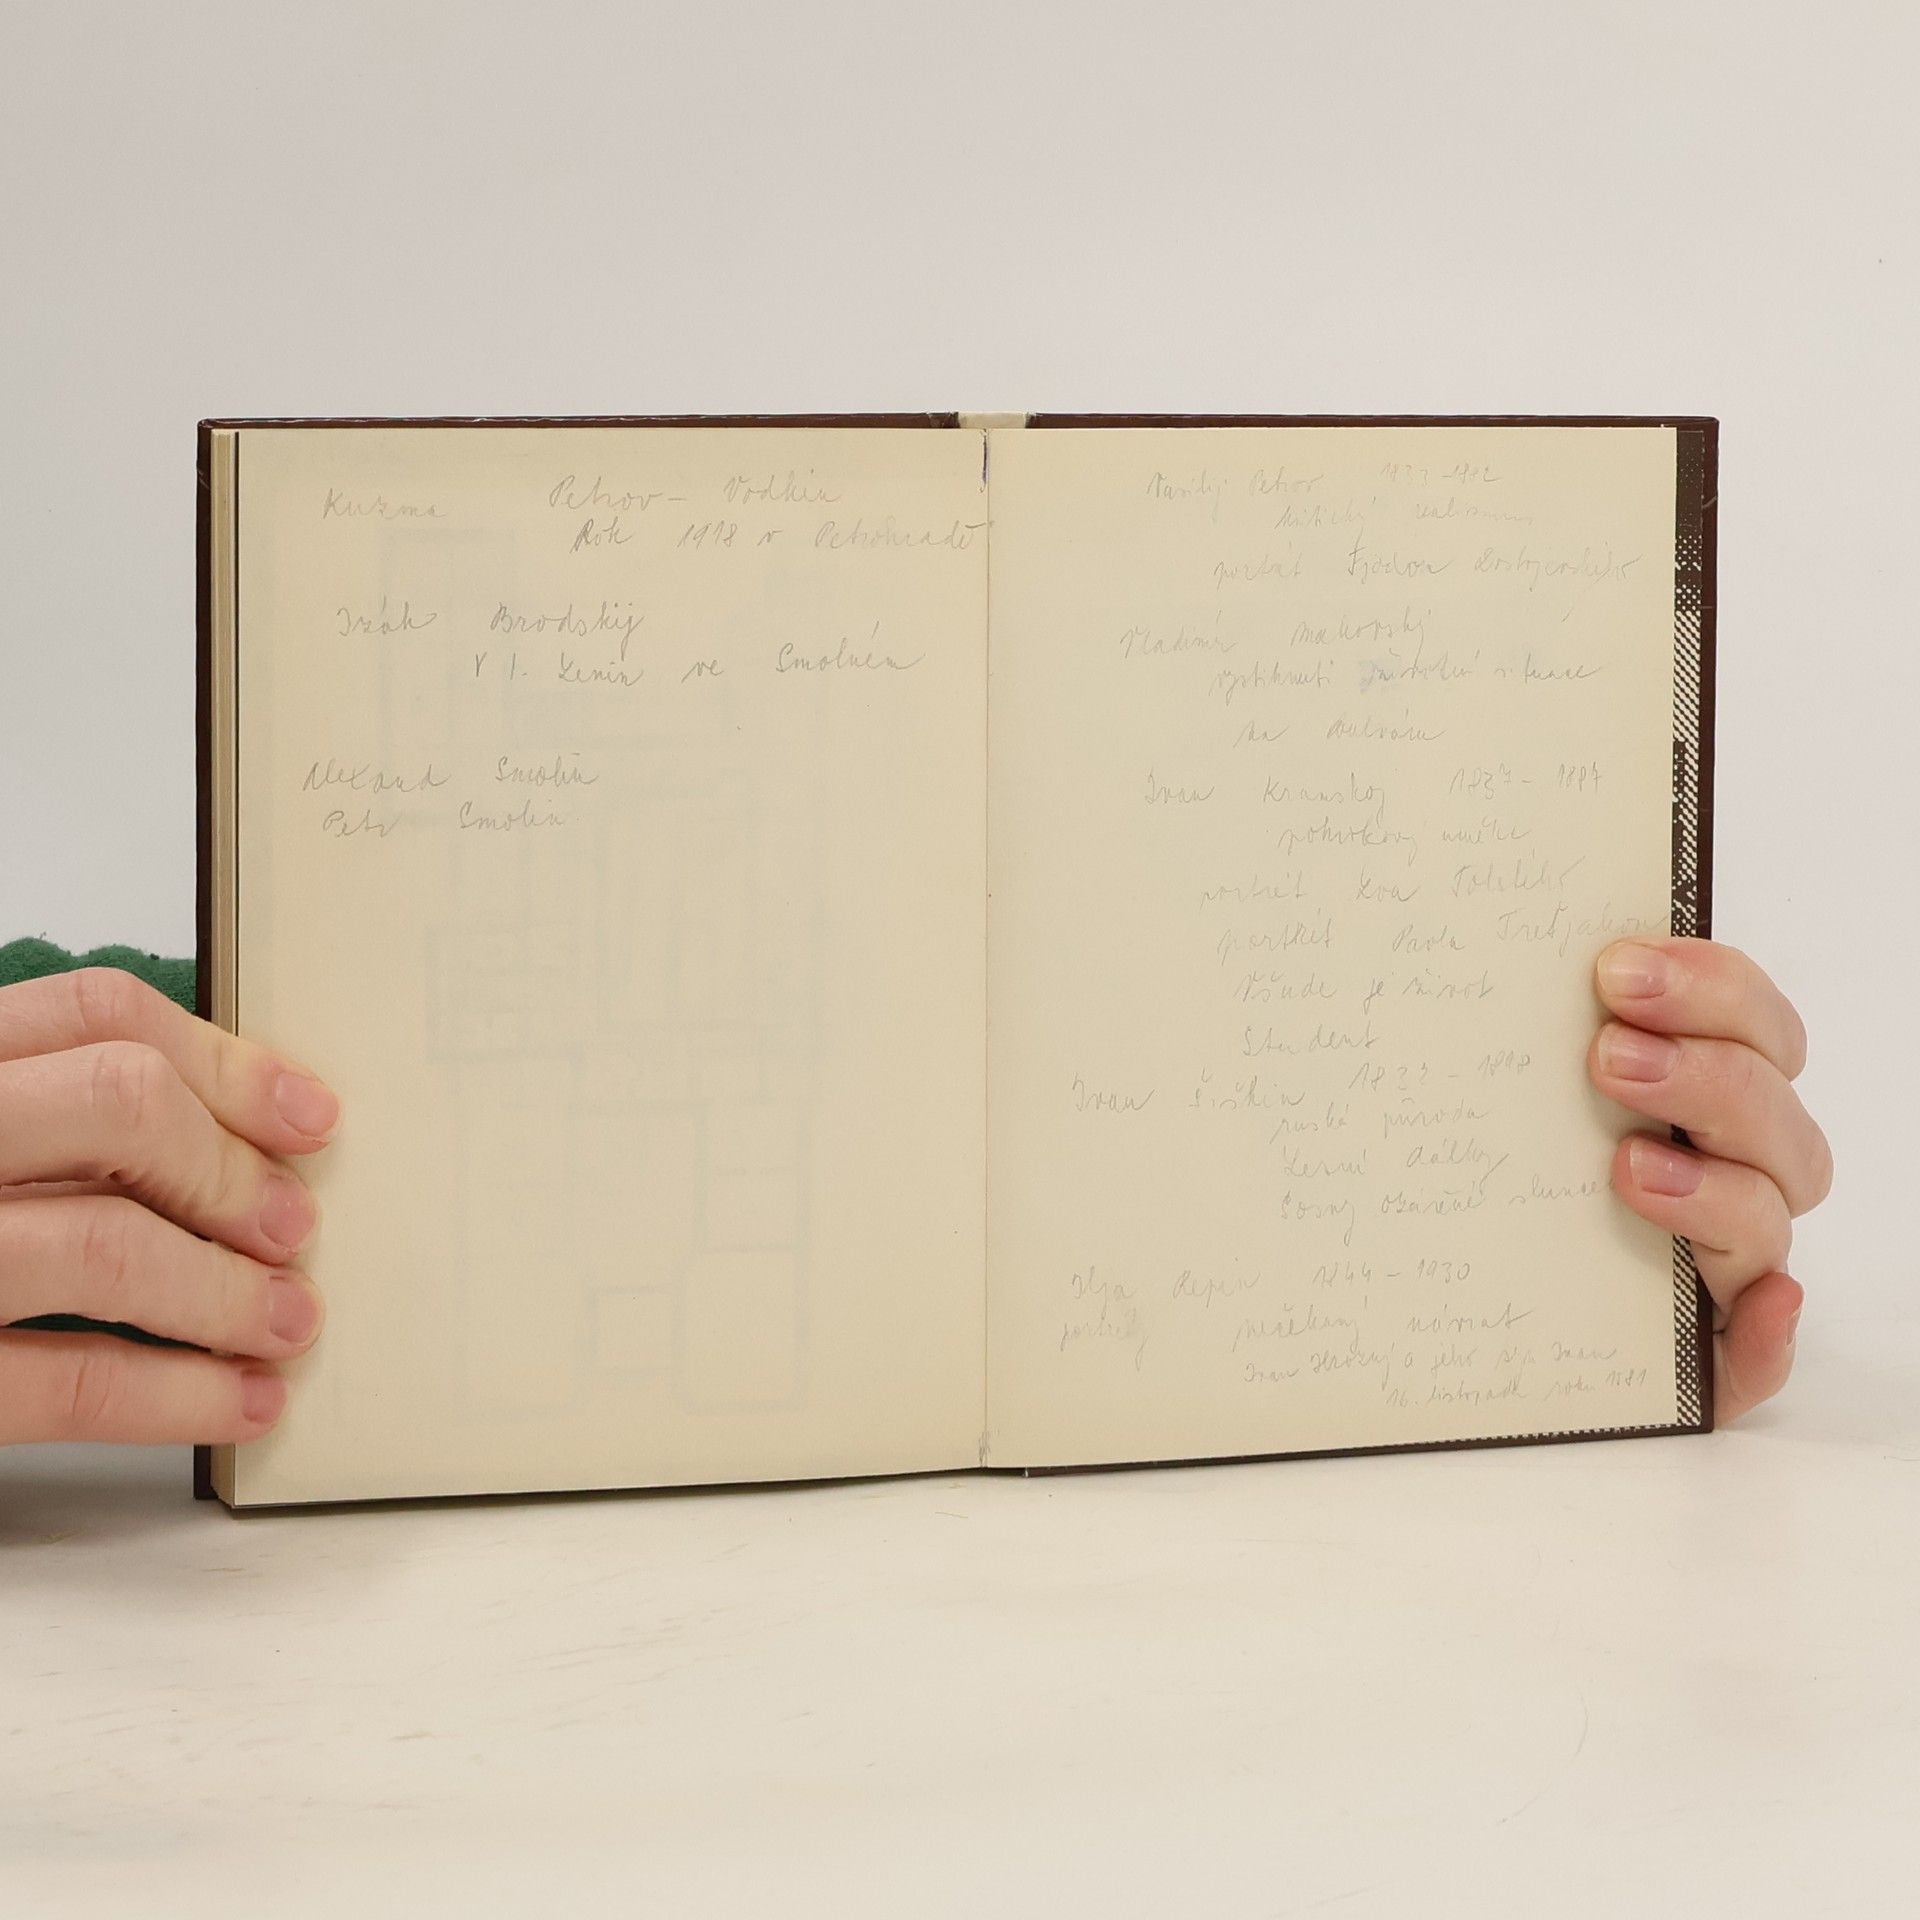 Kuzma Petrov - Vodkin
Rok 1918 v Petrohradě
Izák Brodskij
V I. Lenin ve Smolném
Alexand Smolin
Petr Smolin
Vasilij Petrov 1833-1882
kritický realismus
portrét Fjodora Dostojevského
Vladimír Makovský
vystihnutí životní situace
na bulváru
Ivan Kramskoj 1837 - 1887
pokrokový umělec
portrét Lva Tolstého
portrét Pavla Treťjakova
Všude je život
Student
Ivan Šiškin 1832 - 1898
ruská příroda
Lesní dálky
Sosny ozářené sluncem
Ilja Repin 1844 - 1930
portréty nečekaný návrat
Ivan Hrozný a jeho syn Ivan
16. listopadu roku 1581